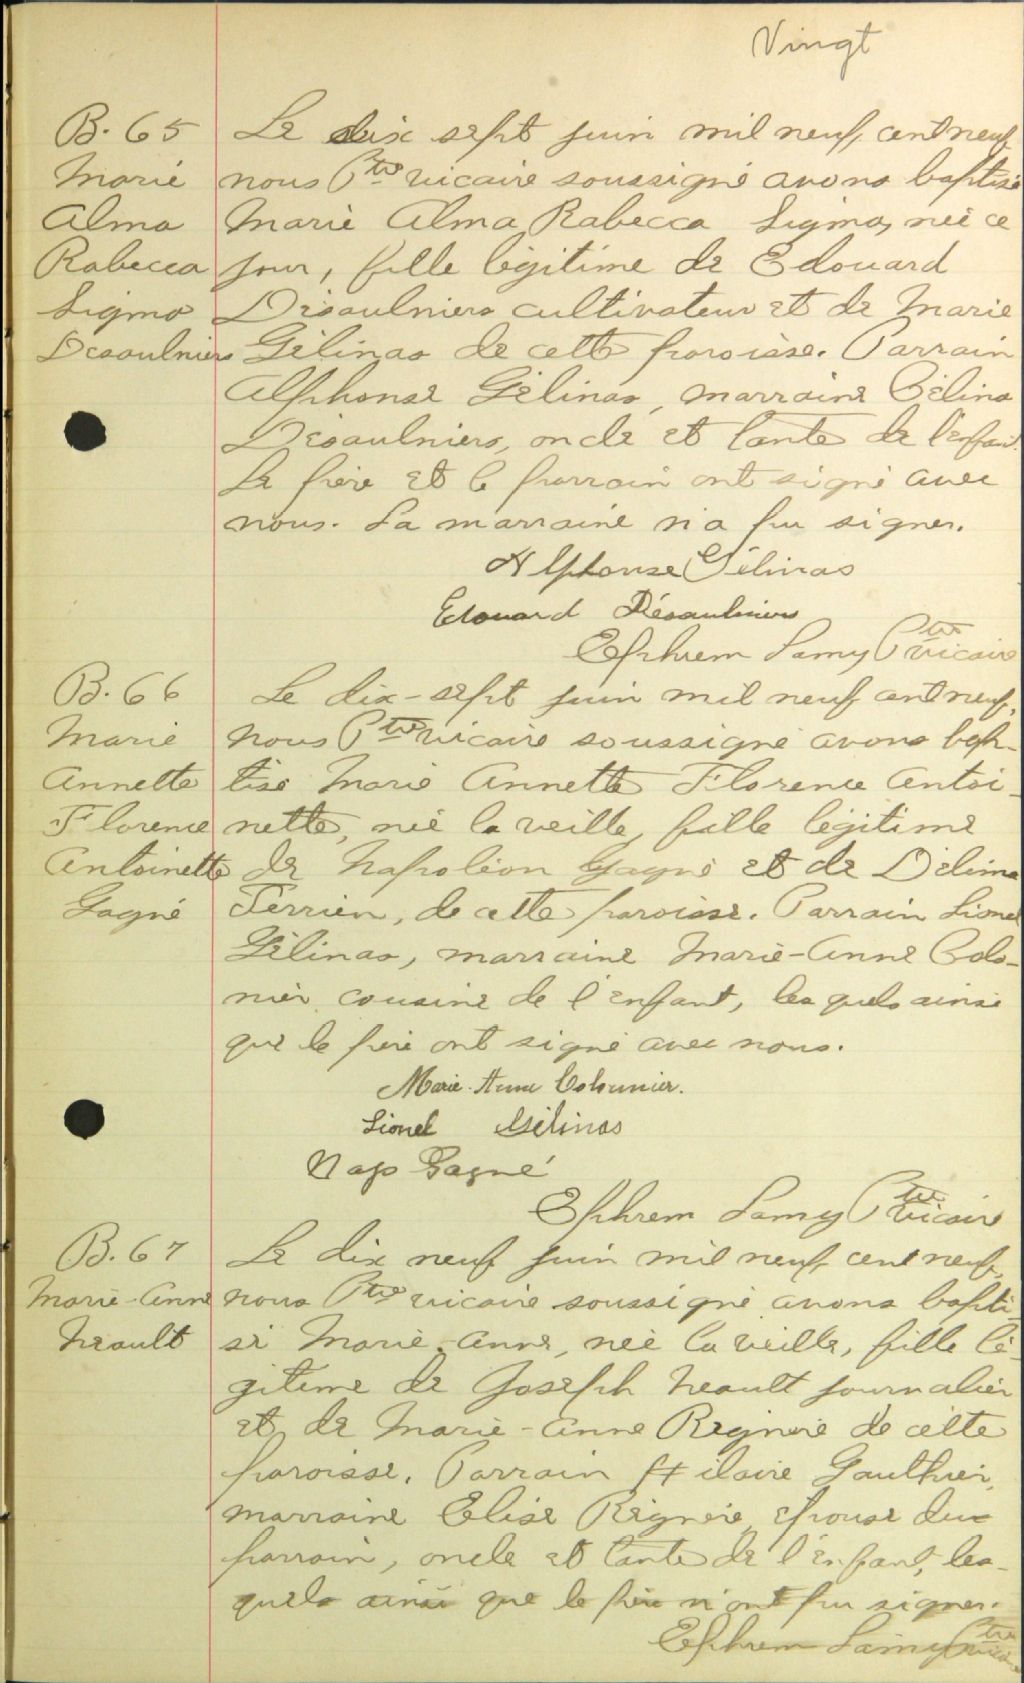 Vingt
B. 65
Marie
Alma
Rabecca
Sigma
Desaulniers
Le dix sept juin mil neuf cent neuf
nous Ptre vicaire soussigné avons baptisé
Marie Alma Rabecca Sigma, née ce
jour, fille légitime de Edouard
Désaulniers cultivateur et de Marie
Gélinas de cette paroisse. Parrain
Alphonse Gélinas, marraine Célina
Désaulniers, oncle et tante de l'enfant.
Le père et le parrain ont signé avec
nous. La marraine n'a pu signer.
Alphonse Gélinas
Edouard Désaulniers
Ephrem Lamy Ptre vicaire
B. 66
Marie
Annette
Florence
Antoinette
Gagné
Le dix-sept juin mil neuf cent neuf,
nous Ptre vicaire soussigné avons bap-
tisé Marie Annette Florence Antoi-
nette, née la veille, fille légitime
de Napoléon Gagné et de Délima
Ferrien, de cette paroisse. Parrain Lionel
Gélinas, marraine Marie-Anne Colo-
nier cousine de l'enfant, lesquels ainsi
que le père ont signé avec nous.
Marie-Anne Colounier.
Lionel Gélinas
Nap Gagné
Ephrem Lamy Ptre vicaire
B. 67
Marie-Anne
Neault
Le dix neuf juin mil neuf cent neuf,
nous Ptre vicaire soussigné avons bapti-
sé Marie-Anne, née la veille, fille lé-
gitime de Joseph Neault journalier
et de Marie-Anne Regnire de cette
paroisse. Parrain Hilaire Gauthier,
marraine Elise Regnire, épouse du
parrain, oncle et tante de l'enfant, les-
quels ainsi que le père n'ont pu signer.
Ephrem Lamy Ptre vicaire